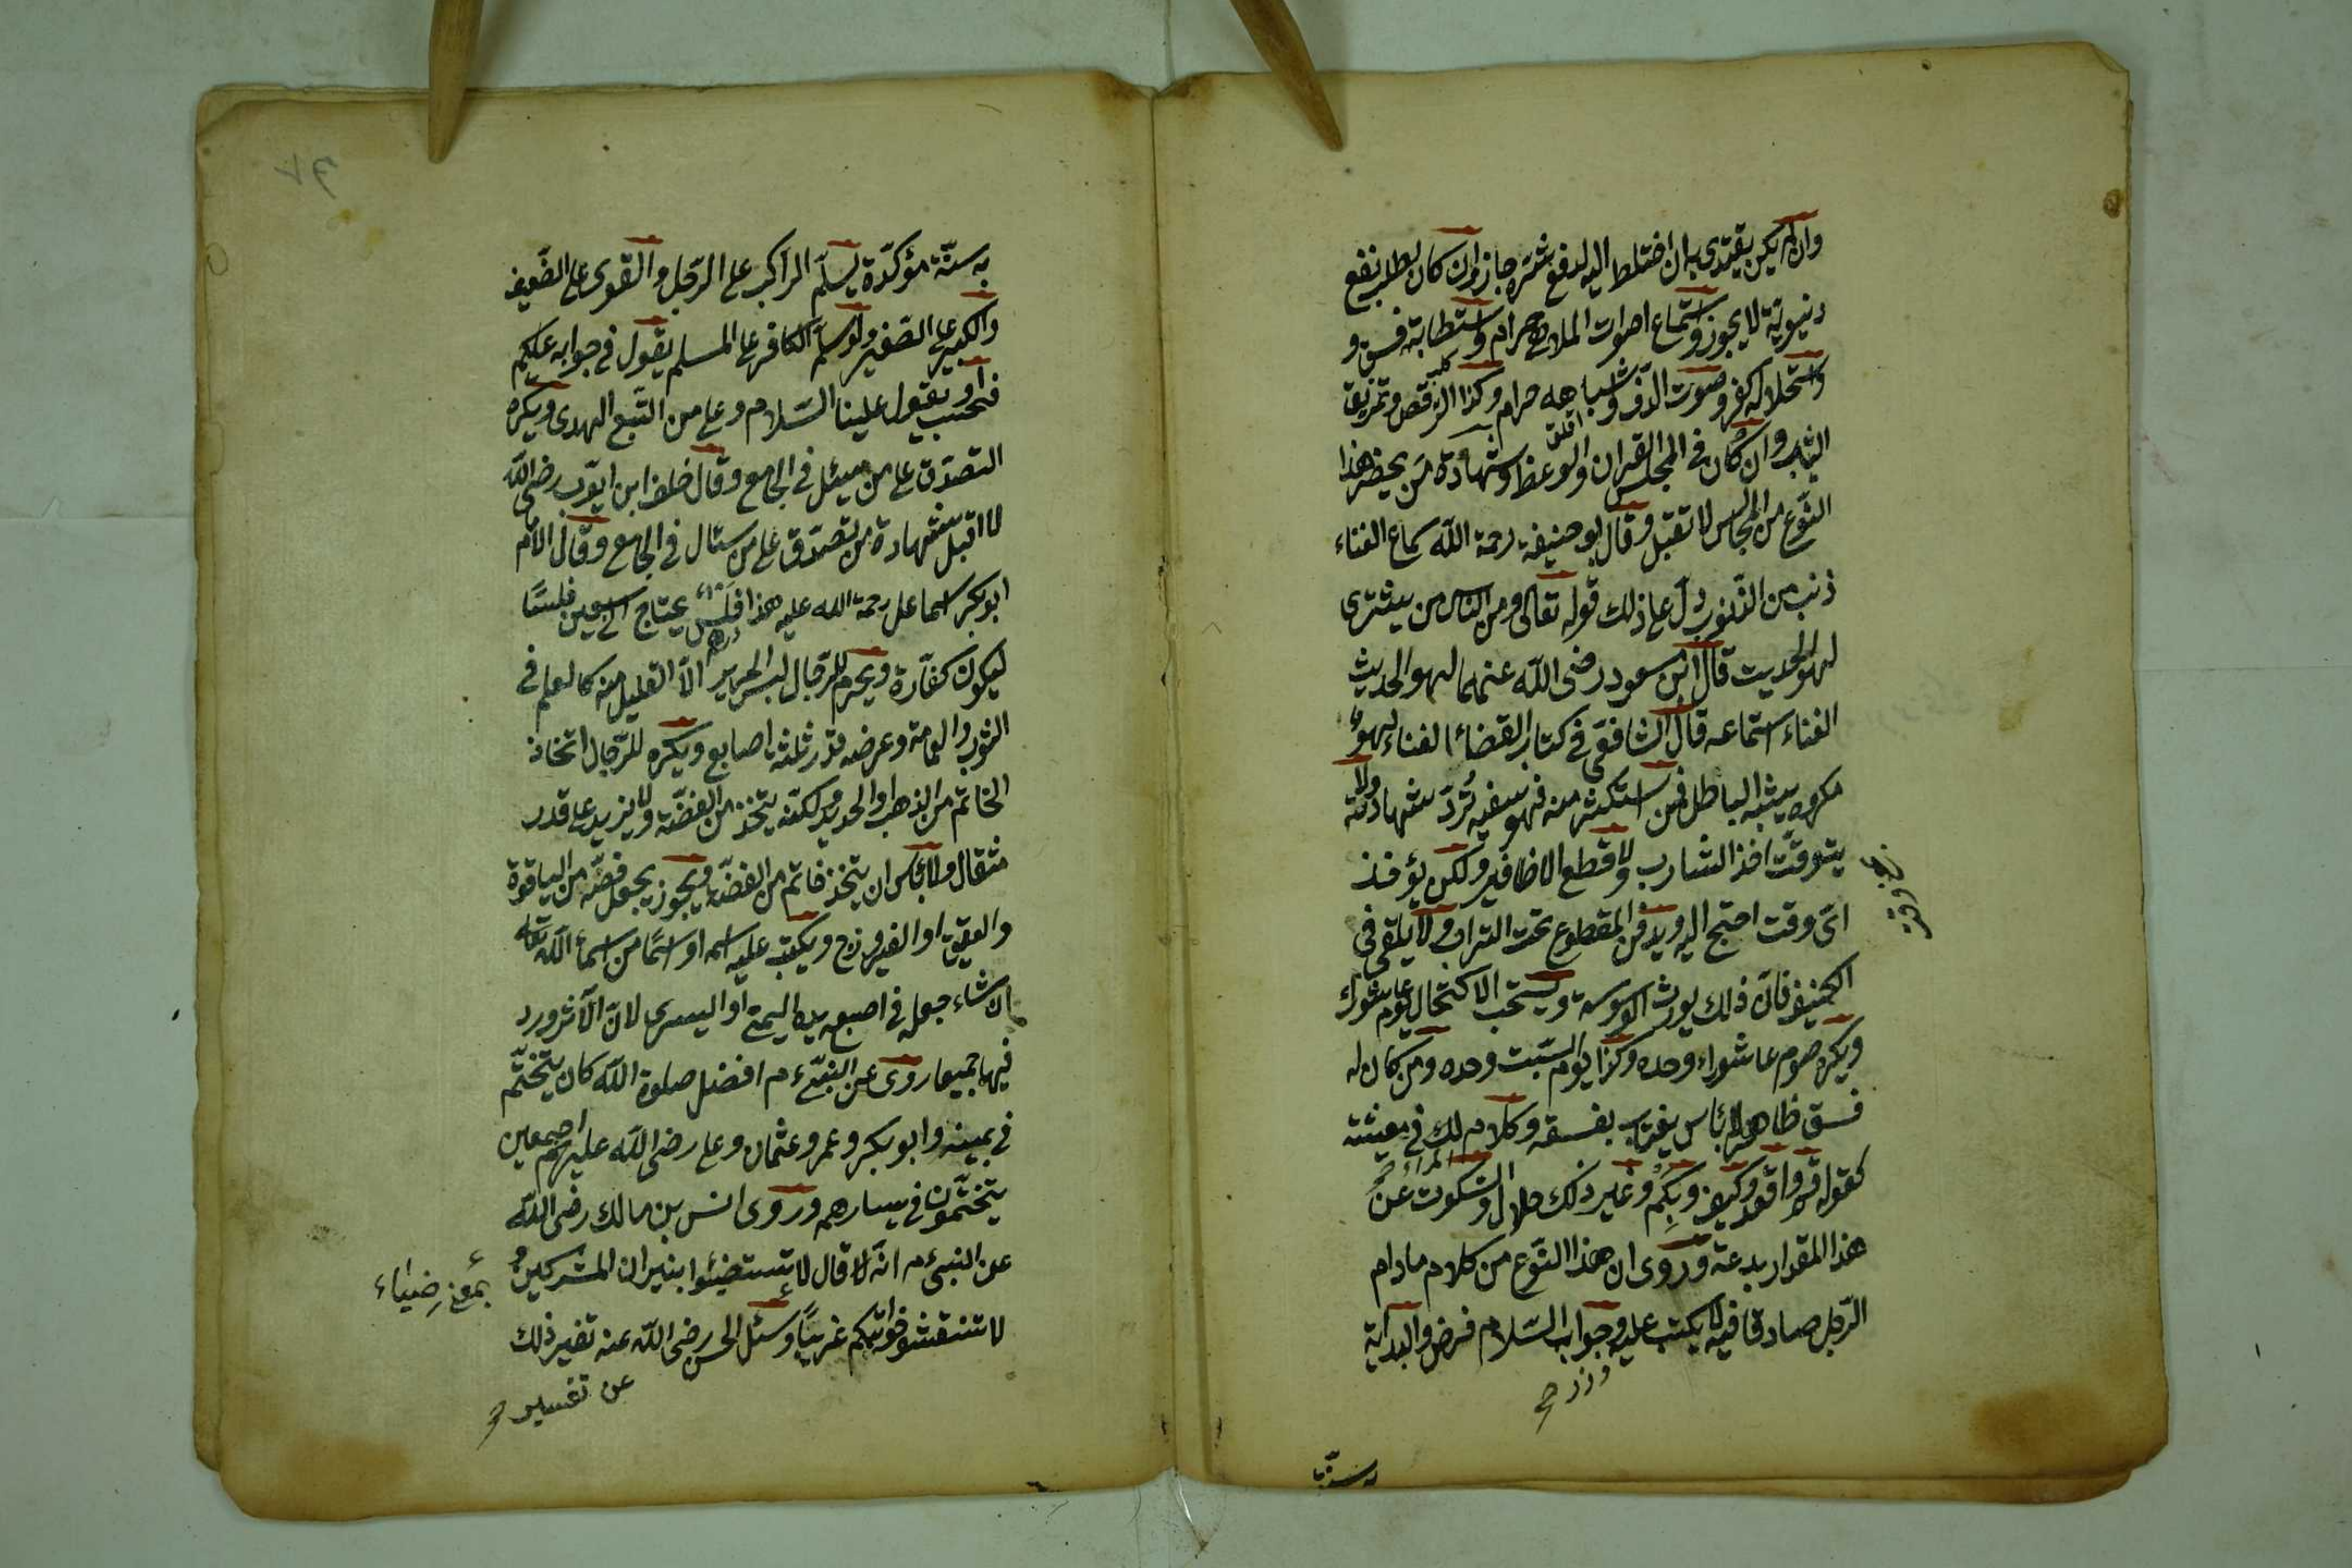 وان لم يكن يقتدى به ان اختلط اليه لدفع شره جاز وان كان لطلب نفع
دنيوية لا يجوز واستماع اصوات الملاهى حرام واستطابة فسق و
واستحلاله كفر وصوت الدّف واشباهه حرام وكذا الرّقص وتمزيق
الثياب وان كان فى المجلس القران والوعظ وشهادة من يحضر هذا
النّوع من المجالس لا تقبل وقال ابو حنيفة رحمة اللّه سماع الغناء
ذنب من الذّنوب دلّ على ذلك قوله تعالى ومن الناس من يشترى
لهو الحديث قال ابن مسعود رضى اللّه عنهما لهو الحديث
الغناء استماعه قال الشافعى فى كتاب القضاء الغناء لهو
مكروه يشبه الباطل فمن استكثر منه فهو سفيه تُردّ شهادته ولا
يتوقّت اخذ الشارب ولا قطع الاظافير ولكن يؤخذ
اىّ وقت احتج اليه ويدفن المقطوع تحت التراب ولا يلقى فى
الكنيف فانّ ذلك يورث الوسوسة ويستحب الاكتحال يوم عاشوراء
ويكره صوم عاشوراء وحده وكذا يوم السّبت وحده ومن كان له
فسق ظاهر لا بأس يغتاب بفسقه وكلام لك فى معيشته
كقوله قم واقعد وكيف وبكم وغير ذلك حلال والسّكوت عن
هذا المقدار بدعة وروى ان هذا النّوع من كلام مادام
الرّجل صادقا فيه لا يكتب عليه وجواب السّلام فرض والبداية
به سنّة
به سنّة مؤكّدة يسلّم الراكب على الرّجل والقوى على الضّعيف
والكبير على الصّغير ولو سلّم الكافر على المسلم يقول فى جوابه عليكم
فحسب او يقول علينا السّلام وعلى من اتّبع الهدى ويكره
التصدّق على من يسئل فى الجامع وقال خلف ابن ايّوب رضى اللّه
لا اقبل شهادة من تصدّق على من سئال فى الجامع وقال الامام
ابو بكر اسماعل رحمة الله عليه هذا فلس يحتاج الى سبعين فلسًا
ليكون كفّارة ويحرم للرّجال لبس الحرير الّا القليل منه كالعلم فى
الثوب والعمامة وعرضه قدر ثلثة اصابع ويكره للرّجال اتخاذ
الخاتم من الذهب او الحديد ولكنّه يتخذ من الفضّة ولا يزيد على قدر
مثقال ولا بأس ان يتخذ خاتم من الفضّة ويجوز يجعل فصّه من الياقوة
والعقيق او الفيروزج ويكتب عليه اسمه او اسمًا من اسماء اللّه تعالى
ان شاء جعله فى اصبع يده اليمنى او اليسرى لانّ الآثر ورد
فيها جميعا روى عن النبىّ م افضل صلوة اللّه كان يتختّم
فى يمينه وابو بكر وعمر وعثمان وعلى رضى اللّه عليهم اجمعين
يتختّمون فى يسارهم وروى انس بن مالك رضى اللّه
عن النبى م انّه قال لا تستضيئوا بنيران المشركين
بمعنى ضياء
لا تنقشوا خواتيكم عربيًّا وسئل الحسن رضى اللّه عنه تفسير ذلك
عن تفسير